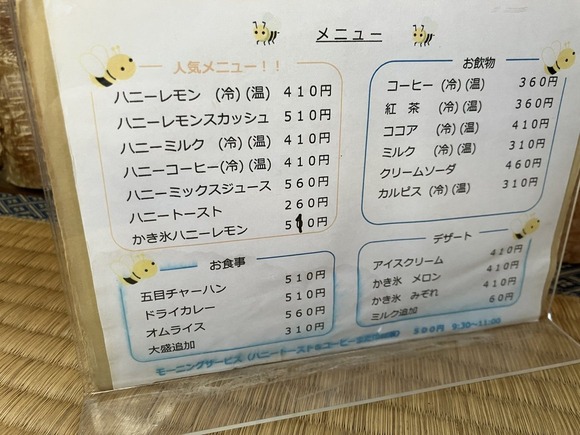 メニュー
人気メニュー！！
ハニーレモン (冷)(温) 410円
ハニーレモンスカッシュ 510円
ハニーミルク (冷)(温) 410円
ハニーコーヒー(冷)(温) 410円
ハニーミックスジュース 560円
ハニートースト 260円
かき氷ハニーレモン 510円
お飲物
コーヒー (冷)(温) 360円
紅 茶 (冷)(温) 360円
ココア (冷)(温) 410円
ミルク (冷)(温) 310円
クリームソーダ 460円
カルピス (冷)(温) 310円
お食事
五目チャーハン 510円
ドライカレー 510円
オムライス 560円
大盛追加 310円
デザート
アイスクリーム 410円
かき氷 メロン 410円
かき氷 みぞれ 410円
ミルク追加 60円
モーニングサービス（ハニートースト&コーヒー 500円 9:30~11:00